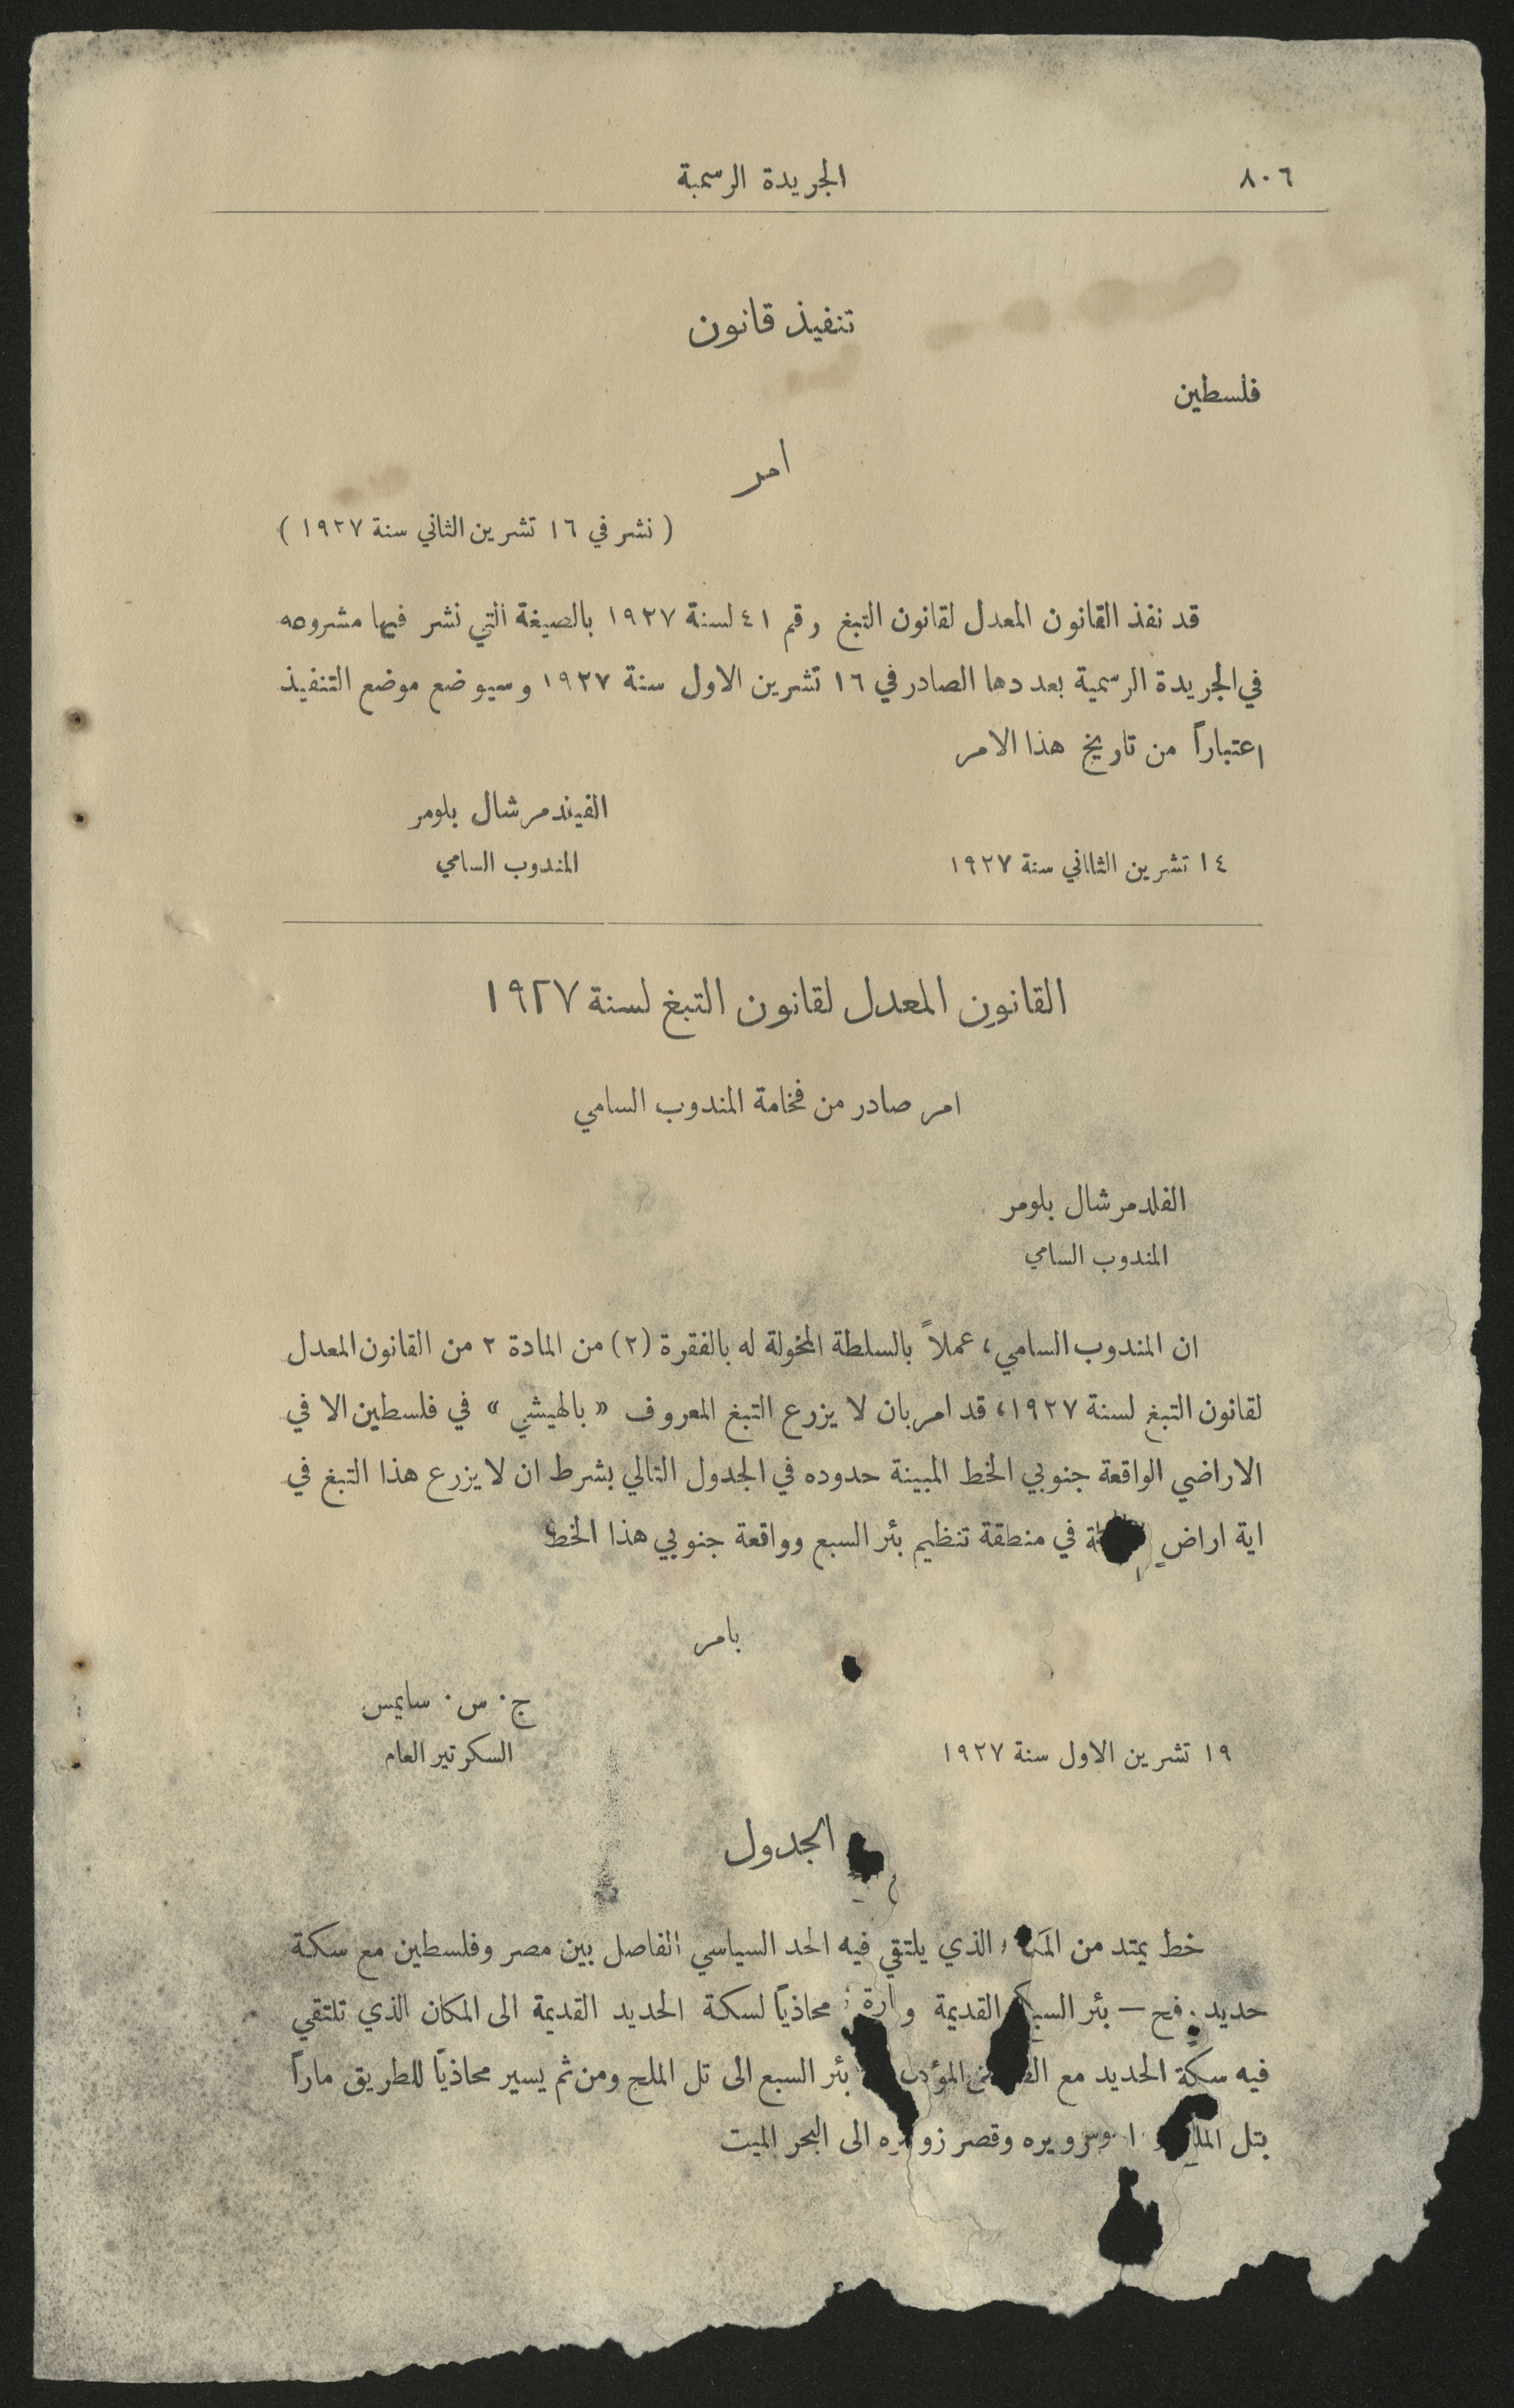 ٨٠٦
الجريدة الرسمية
تنفيذ قانون
فلسطين
امر
( نشر في ١٦ تشرين الثاني سنة ١٩٢٧ )
قد نفذ القانون المعدل لقانون التبغ رقم ٤١ لسنة ١٩٢٧ بالصيغة التي نشر فيها مشروعه
في الجريدة الرسمية بعددها الصادر في ١٦ تشرين الاول سنة ١٩٢٧ وسيوضع موضع التنفيذ
اعتباراً من تاريخ هذا الامر
الفيندمرشال بلومر
المندوب السامي
١٤ تشرين الثااني سنة ١٩٢٧
القانون المعدل لقانون التبغ لسنة ١٩٢٧
امر صادر من فخامة المندوب السامي
الفلدمرشال بلومر
المندوب السامي
ان المندوب السامي، عملاً بالسلطة المخولة له بالفقرة (٢) من المادة ٢ من القانون المعدل
لقانون التبغ لسنة ١٩٢٧، قد امر بان لا يزرع التبغ المعروف « بالهيشي » في فلسطين الا في
الاراضي الواقعة جنوبي الخط المبينة حدوده في الجدول التالي بشرط ان لا يزرع هذا التبغ في
اية اراضٍ في منطقة تنظيم بئر السبع وواقعة جنوبي هذا الخط
بامر
ج. س. سايمس
السكرتير العام
١٩ تشرين الاول سنة ١٩٢٧
الجدول
خط يمتد من الذي يلتقي فيه الحد السياسي الفاصل بين مصر وفلسطين مع سكة
حديد — بئر القديمة محاذياً لسكة الحديد القديمة الى المكان الذي تلتقي
فيه سكة الحديد مع بئر السبع الى تل الملح ومن ثم يسير محاذياً للطريق ماراً
بتل وقصر الى البحر الميت